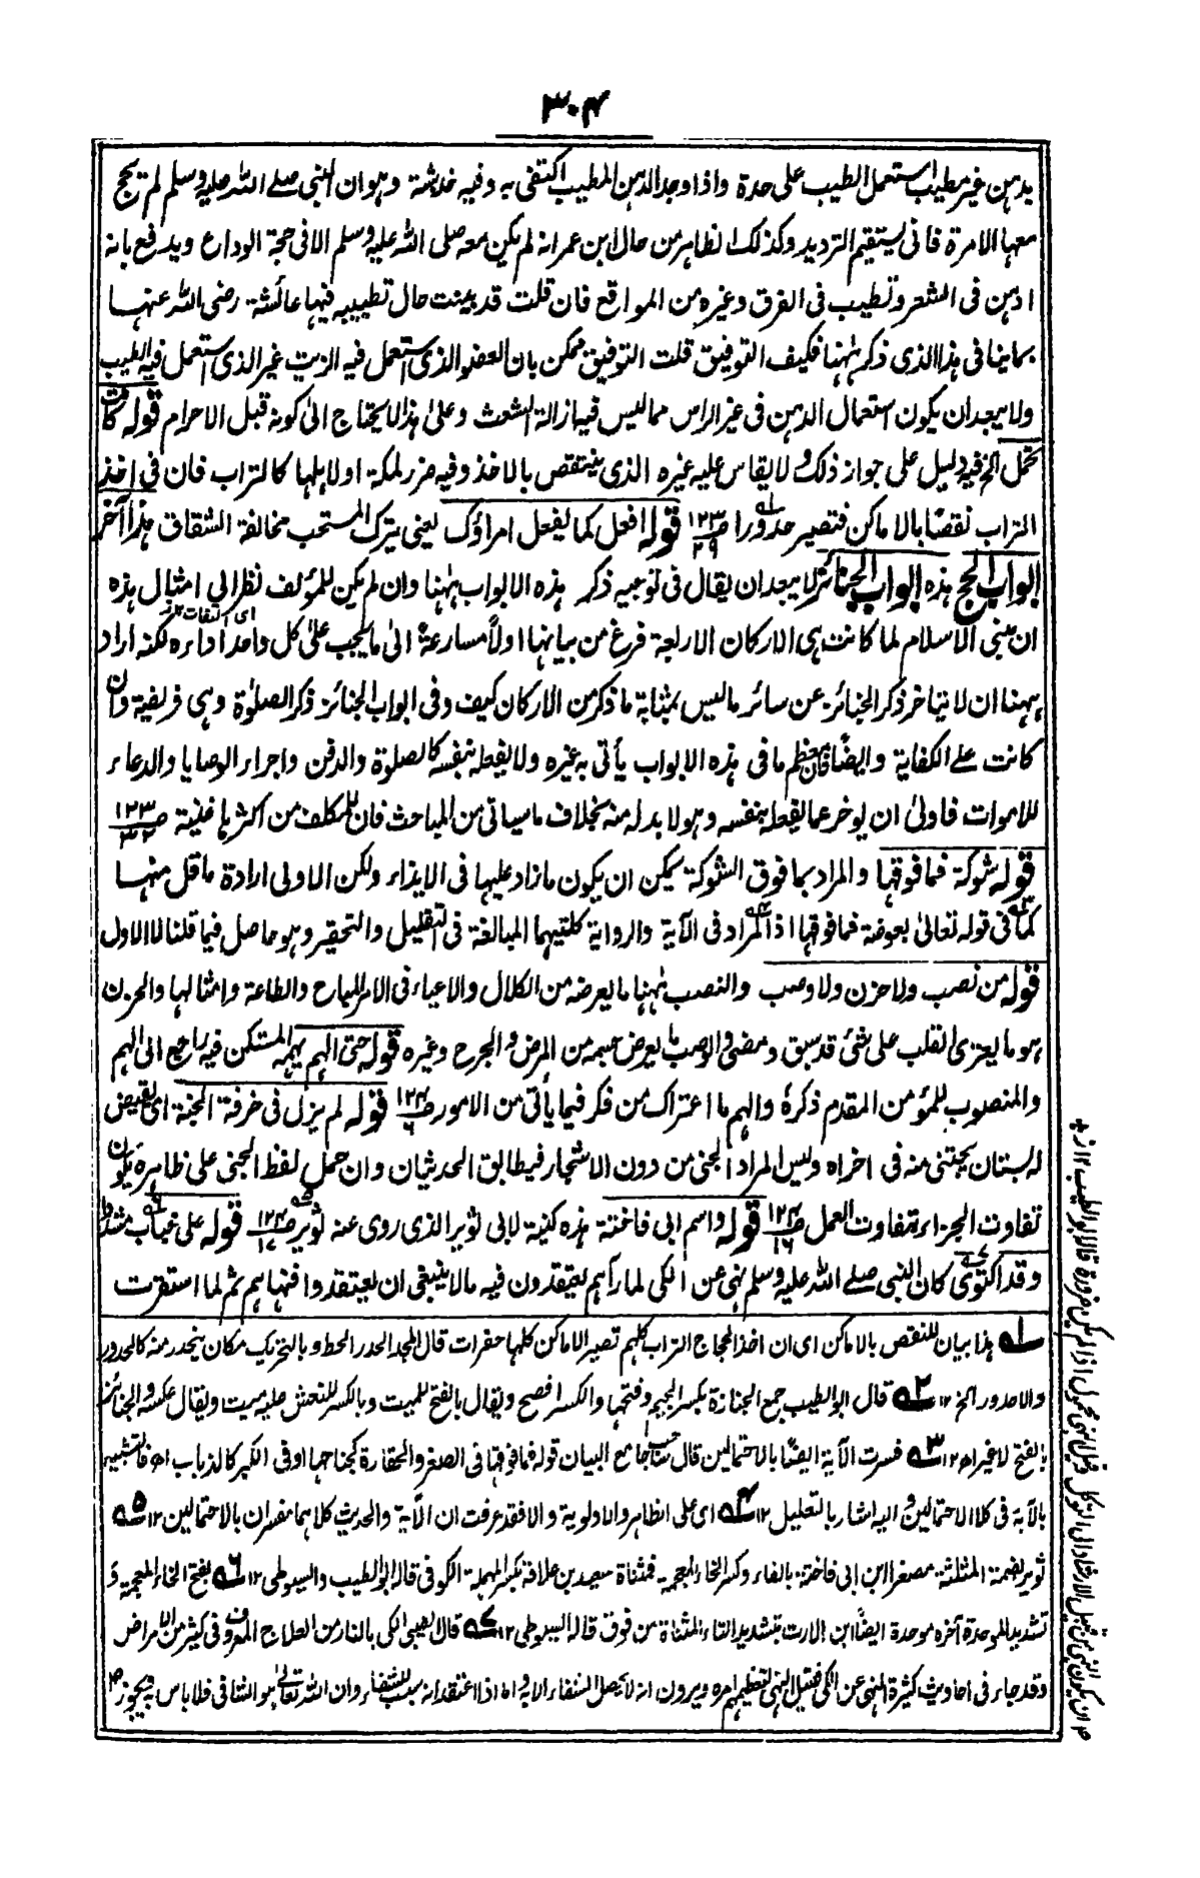 ٣٠٤
يدهن غير مطيب استعمل الطيب على حدة واذا وجد الدهن المطيب اكتفى به وفيه خدشة وهو ان النبى صلے الله عليه وسلم لم يحج
معها الا مرة فانى يستقيم الترديد وكذلك الظاهر من حال ابن عمر انه لم يكن معه صلى الله عليه وسلم الا فى حجة الوداع ويدفع بانه
ادهن فى الشعر وتطيب فى الفرق وغيره من المواقع فان قلت قد بينت حال تطييبه فيها عائشة رضى الله عنها
بما ينافى هذا الذى ذكر ههنا فكيف التوفيق قلت التوفيق ممكن بان العضو الذى استعمل فيه الزيت غير الذى استعمل فيه الطيب
ولا يبعد ان يكون استعمال الدهن فى غير الراس مما ليس فيه ازالة الشعث وعلى هذا لا يحتاج الى كونه قبل الاحرام قوله كانت
تحمل الخ فيه دليل على جواز ذلك ولا يقاس عليه غيره الذى ينتقص بالاخذ وفيه ضرر لمكة او لاهلها كالتراب فان فى اخذ
التراب نقصًا بالاماكن فتصير حدورا ص ١٢٣/٢٩ قوله افعل كما يفعل امراؤك يعنى يترك المستحب مخالفة الشقاق هذا آخر
ابواب الحج هذه ابواب الجنائز لا يبعد ان يقال فى توجيه ذكر هذه الابواب ههنا وان لم يكن للمؤلف نظر الى امثال هذه
اى التفات ١٢ ز
ان مبنى الاسلام لما كانت هى الاركان الاربعة فرغ من بيانها اولًا مسارعة الى ما يجب على كل واحد اداءه لكنه اراد
ههنا ان لا يتاخر ذكر الجنائز عن سائر ما ليس بمثابة ما ذكر من الاركان كيف وفى ابواب الجنائز ذكر الصلوٰة وهى فريضة وان
كانت على الكفاية وايضًا فان معظم ما فى هذه الابواب يأتى به غيره ولا يفعله بنفسه كالصلوة والدفن واجراء الوصايا والدعاء
للاموات فاولى ان يوخر عما يفعله بنفسه وهو لا بد له منه بخلاف ما سياتى من المباحث فان للمكلف من اكثرها غنية ص ١٢٣/٣٢
قوله شوكة فما فوقها والمراد بما فوق الشوكة يمكن ان يكون ما زاد عليها فى الايذاء ولكن الاولى ارادة ما قل منها
كما فى قوله تعالى بعوضة فما فوقها اذ المراد فى الآية والرواية كلتيهما المبالغة فى التقليل والتحقير وهو حاصل فيما قلنا لا الاول
قوله من نصب ولا حزن ولا وصب والنصب ههنا ما يعرضه من الكلال والاعياء فى الامر المباح والطاعة وامثالها والحزن
هو ما يعترى القلب على شئ قد سبق ومضى والوصب ما يعرض جسمه من المرض والجرح وغيره قوله حتى الهم يهمه المستكن فيه راجع الى الهم
والمنصوب للمؤمن المقدم ذكره والهم ما اعتراك من فكر فيما يأتى من الامور ص ١٢٤/٦ قوله لم يزل فى خرفة الجنة اى يقيض
له بستان يجتنى منه فى اخراه وليس المراد الجنى من دون الاشجار فيطابق الحديثان وان حمل لفظ الجنى على ظاهره يكون
تفاوت الجزاء بتفاوت العمل ص ١٢٤/١٦ قوله واسم ابى فاختة هذه كنية لابى ثوير الذى روى عنه ثوير ص ١٢٤/١٧ قوله على خباب مشددا
وقد اكتوى كان النبى صلے الله عليه وسلم نهى عن الكى لما راهم يعتقدون فيه ما لا ينبغى ان يعتقدوا فنهاهم ثم لما استقرت
له١ هذا بيان للنقص بالاماكن اى ان اخذ الحجاج التراب كلهم تصير الاماكن كلها حفرات قال المجد الحدر الحط وبالتحريك مكان ينحدر منه كالحدور
والاحدور الخ ١٢ له٢ قال ابو الطيب جمع الجنازة بكسر الجيم وفتحها والكسر افصح ويقال بالفتح للميت وبالكسر للنعش عليه ميت ويقال عكسه والجنائز
بالفتح لا غير اھ ١٢ له٣ فسرت الآية ايضًا بالاحتمالين قال صاحب جامع البيان قوله فما فوقها فى الصغر والحقارة كجناحها او فى الكبر كالذباب اھ فالتشبيه
بالآية فى كلا الاحتمالين واليه اشار بالتعليل ١٢ له٤ اى على الظاهر والاولوية والا فقد عرفت ان الآية والحديث كلاهما مفسران بالاحتمالين ١٢ له٥
ثوير بضم المثلثة مصغرا ابن ابى فاختة بالفاء وكسر الخاء المعجمة فمثناة سعيد بن علاقة بكسر المهملة الكوفى قاله ابو الطيب والسيوطى ١٢ له٦ بفتح الخاء المعجمة و
تشديد الموحدة آخره موحدة ايضًا ابن الارت بتشديد التاء المثناة من فوق قاله السيوطى ١٢ له٧ قال العينى الكى بالنار من العلاج المعروف فى كثير من الامراض
وقد جاء فى احاديث كثيرة النهى عن الكى فقيل النهى لتعظيمهم امره ويرون انه لا يحصل الشفاء الا به واما اذا اعتقد انه سبب للشفاء وان الله تعالى هو الشافى فلا باس به ويجوز
ان يكون النهى من قبيل الارشاد الى التوكل وقيل النهى محمول اذا لم يكن ضرورة قاله ابو الطيب ١٢ ز